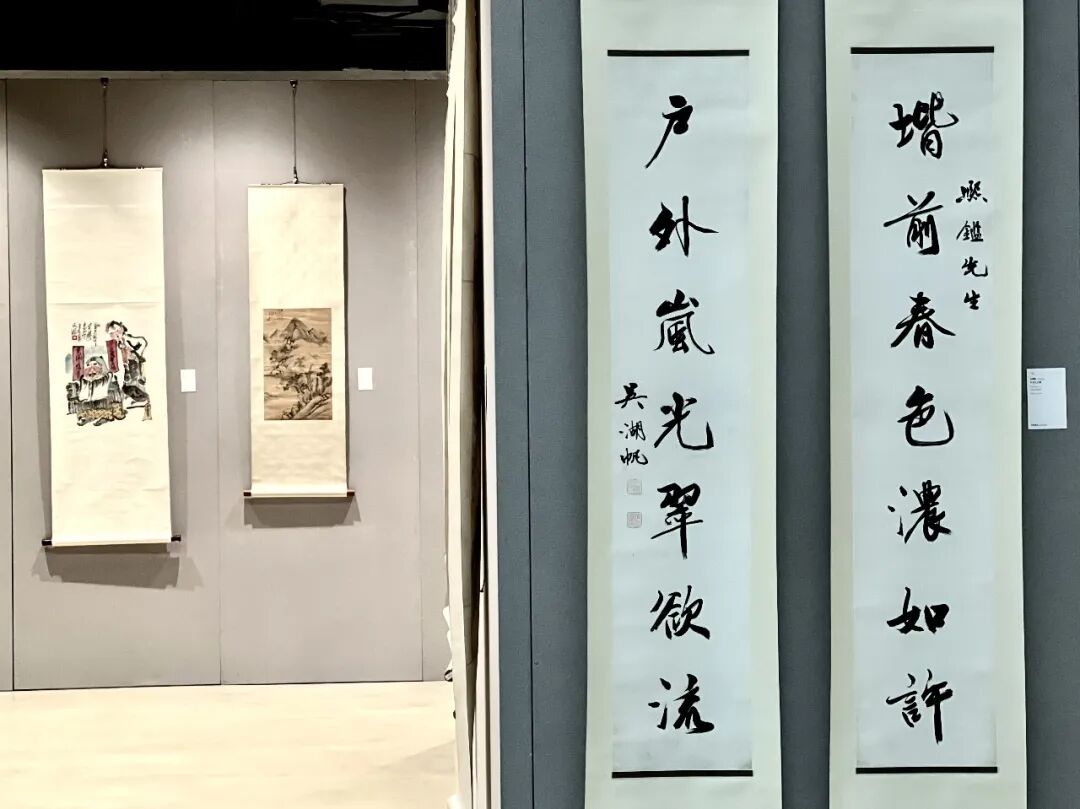 堦前春色濃如許
熙鑑先生
户外嵐光翠欲流
吳湖帆